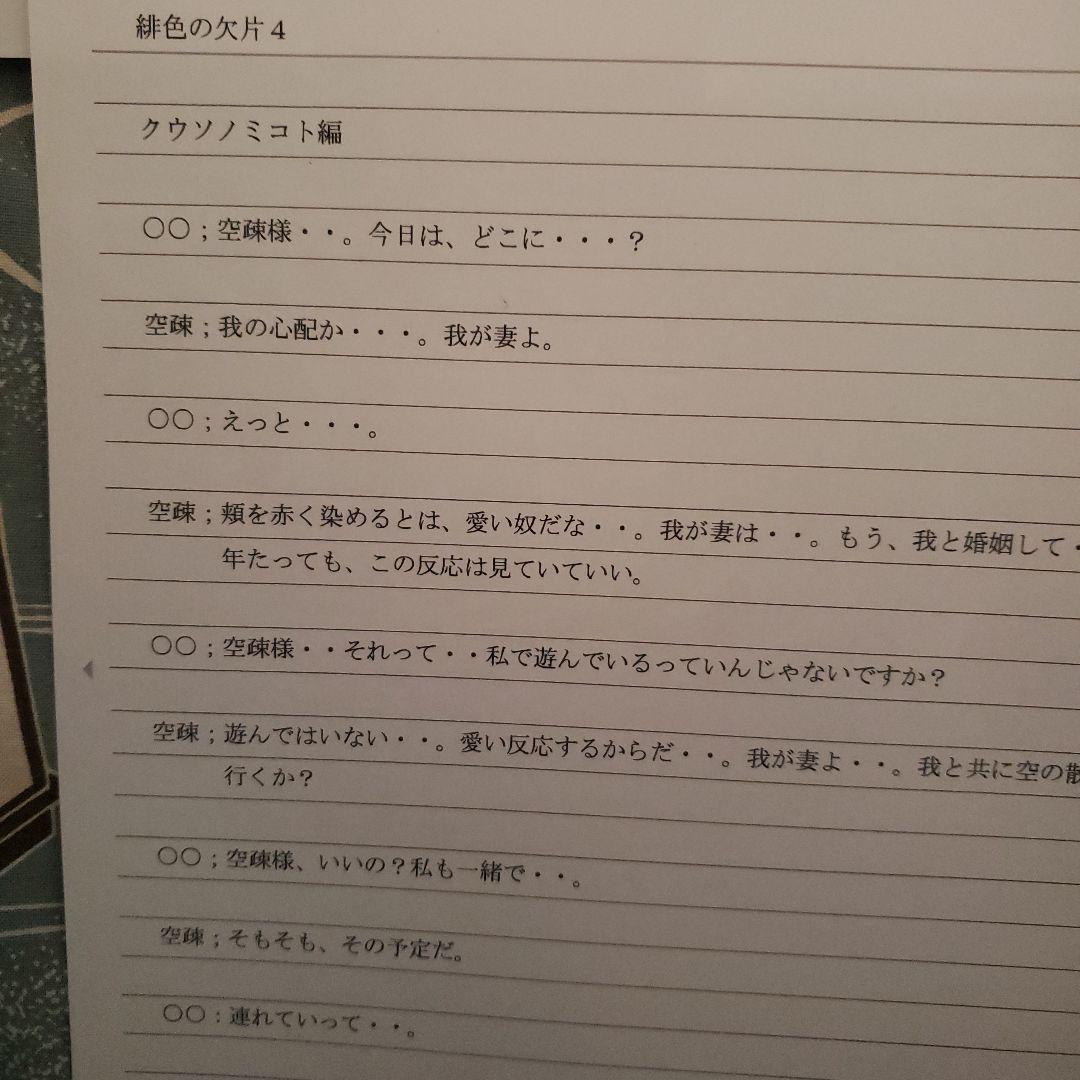 緋色の欠片４
クウソノミコト編
〇〇；空疎様・・。今日は、どこに・・・？
空疎；我の心配か・・・。我が妻よ。
〇〇；えっと・・・。
空疎；頬を赤く染めるとは、愛い奴だな・・。我が妻は・・。もう、我と婚姻して・
年たっても、この反応は見ていていい。
〇〇；空疎様・・それって・・私で遊んでいるっていんじゃないですか？
空疎；遊んではいない・・。愛い反応するからだ・・。我が妻よ・・。我と共に空の散
行くか？
〇〇；空疎様、いいの？私も一緒で・・。
空疎；そもそも、その予定だ。
〇〇：連れていって・・。